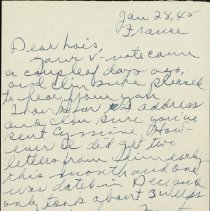 Jan 28, 45
France
Dear Lois,
Your V-note came
a couple of days ago,
and I'm sure pleased
to hear from
address
and I'm sure you've
sent mine. How-
ever I did get two
letters from early
this month and one
was dated in Dec and
only took about 3 weeks